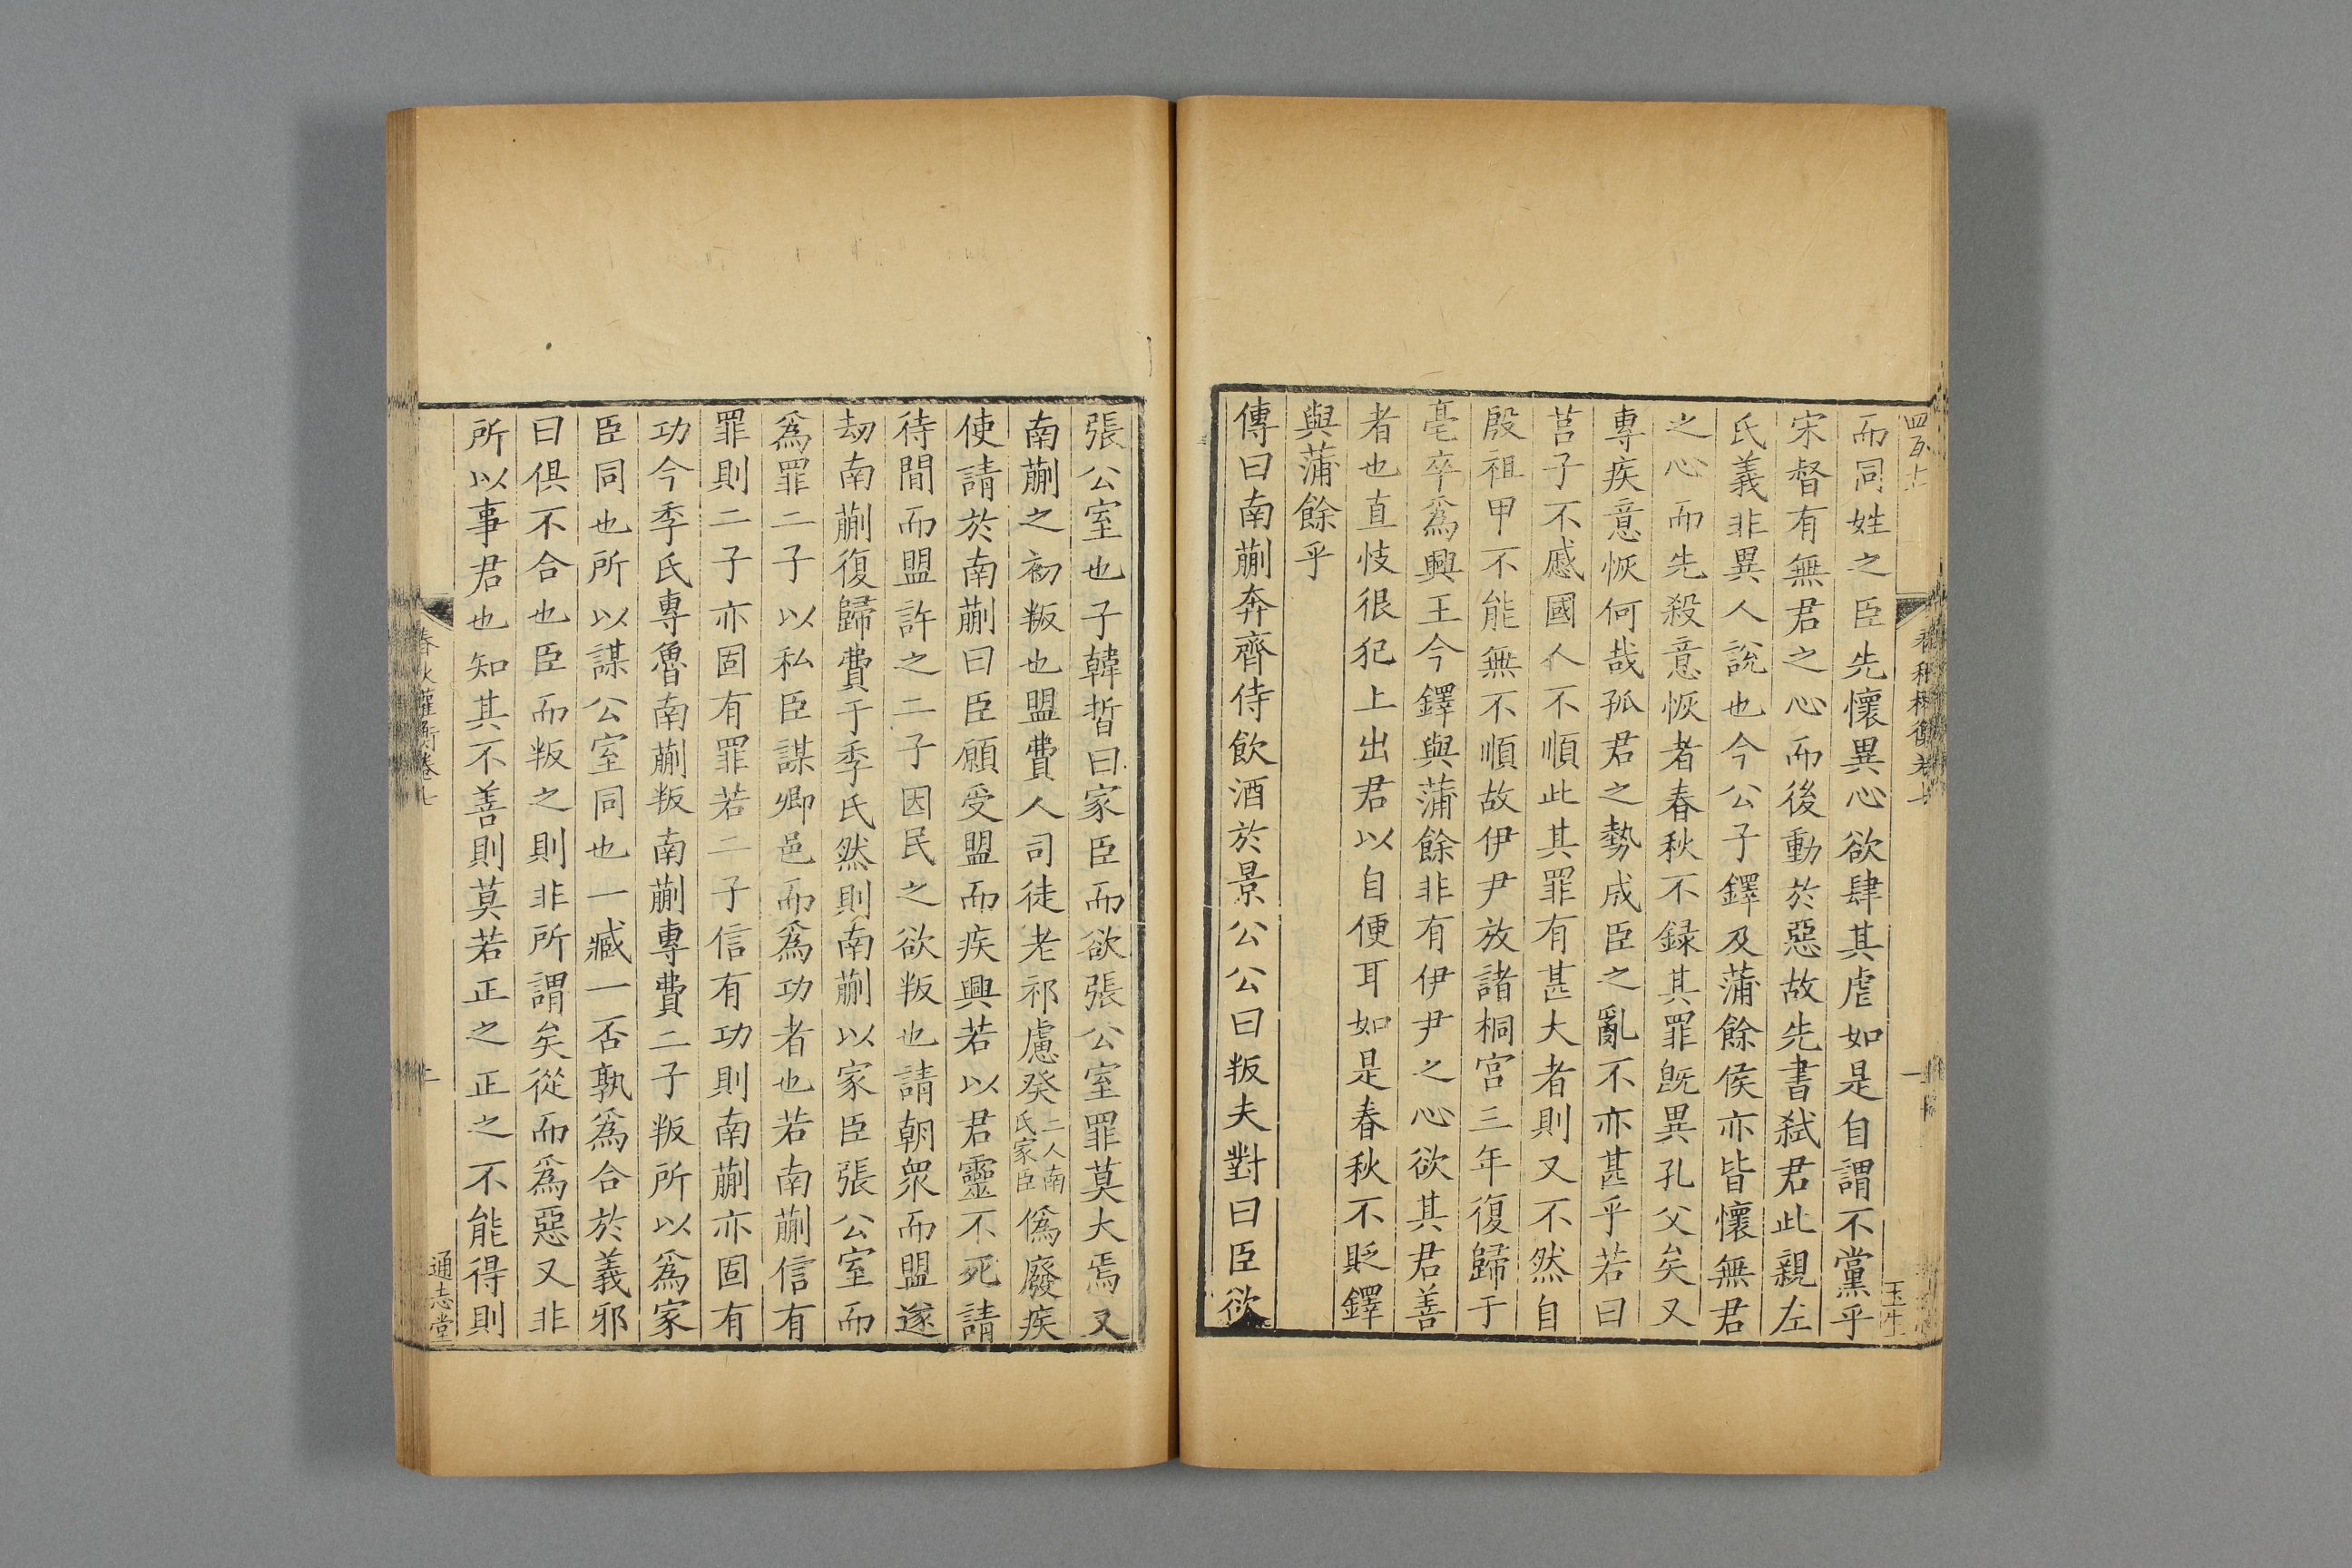 而同姓之臣先懷異心欲肆其虐如是自謂不黨乎
宋督有無君之心而後動於惡故先書弑君此親左
氏義非異人說也今公子鐸及蒲餘侯亦皆懷無君
之心而先殺意恢者春秋不録其罪旣異孔父矣又
專疾意恢何哉孤君之勢成臣之亂不亦甚乎若曰
莒子不慼國人不順此其罪有甚大者則又不然自
殷祖甲不能無不順故伊尹放諸桐宮三年復歸于
亳卒爲興王今鐸與蒲餘非有伊尹之心欲其君善
者也直忮很犯上出君以自便耳如是春秋不貶鐸
與蒲餘乎
傳曰南蒯奔齊侍飲酒於景公公曰叛夫對曰臣欲
張公室也子韓晳曰家臣而欲張公室罪莫大焉又
南蒯之初叛也盟費人司徒老祁慮癸二人南氏家臣僞廢疾
使請於南蒯曰臣願受盟而疾興若以君靈不死請
待間而盟許之二子因民之欲叛也請朝衆而盟遂
劫南蒯復歸費于季氏然則南蒯以家臣張公室而
爲罪二子以私臣謀卿邑而爲功者也若南蒯信有
罪則二子亦固有罪若二子信有功則南蒯亦固有
功今季氏專魯南蒯叛南蒯專費二子叛所以爲家
臣同也所以謀公室同也一臧一否孰爲合於義邪
曰俱不合也臣而叛之則非所謂矣從而爲惡又非
所以事君也知其不善則莫若正之正之不能得則
春秋權衡卷七
通志堂